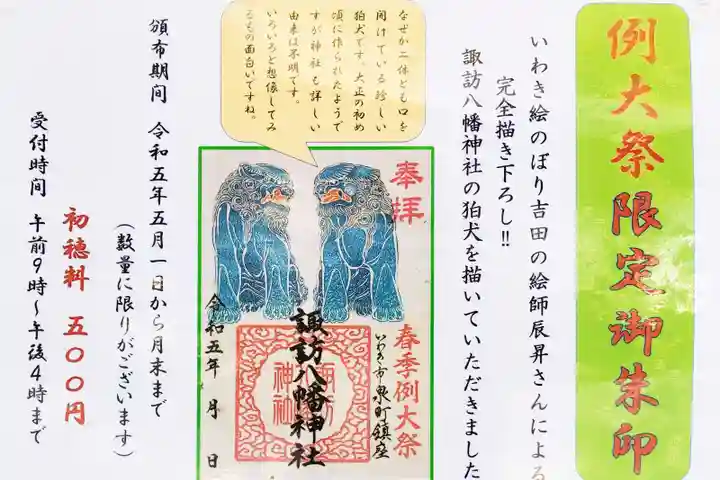 例大祭限定御朱印
いわき絵のぼり吉田の絵師辰昇さんによる
完全描き下ろし!!
諏訪八幡神社の狛犬を描いていただきました
なぜか二体とも口を
開けている珍しい
狛犬です。大正の初め
頃に作られたようで
すが神社も詳しい
由来は不明です。
いろいろと想像してみ
るもの面白いですね。
奉拝
春季例大祭
いわき市泉町鎮座
諏訪八幡神社
令和五年 月 日
頒布期間 令和五年五月一日から月末まで
(数量に限りがございます)
初穂料 五〇〇円
受付時間 午前9時~午後4時まで